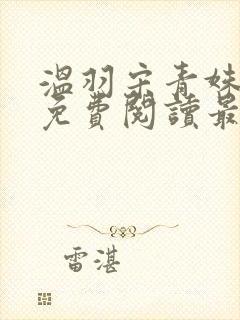 溫羽宋青妹
免費閱讀最
雷湛